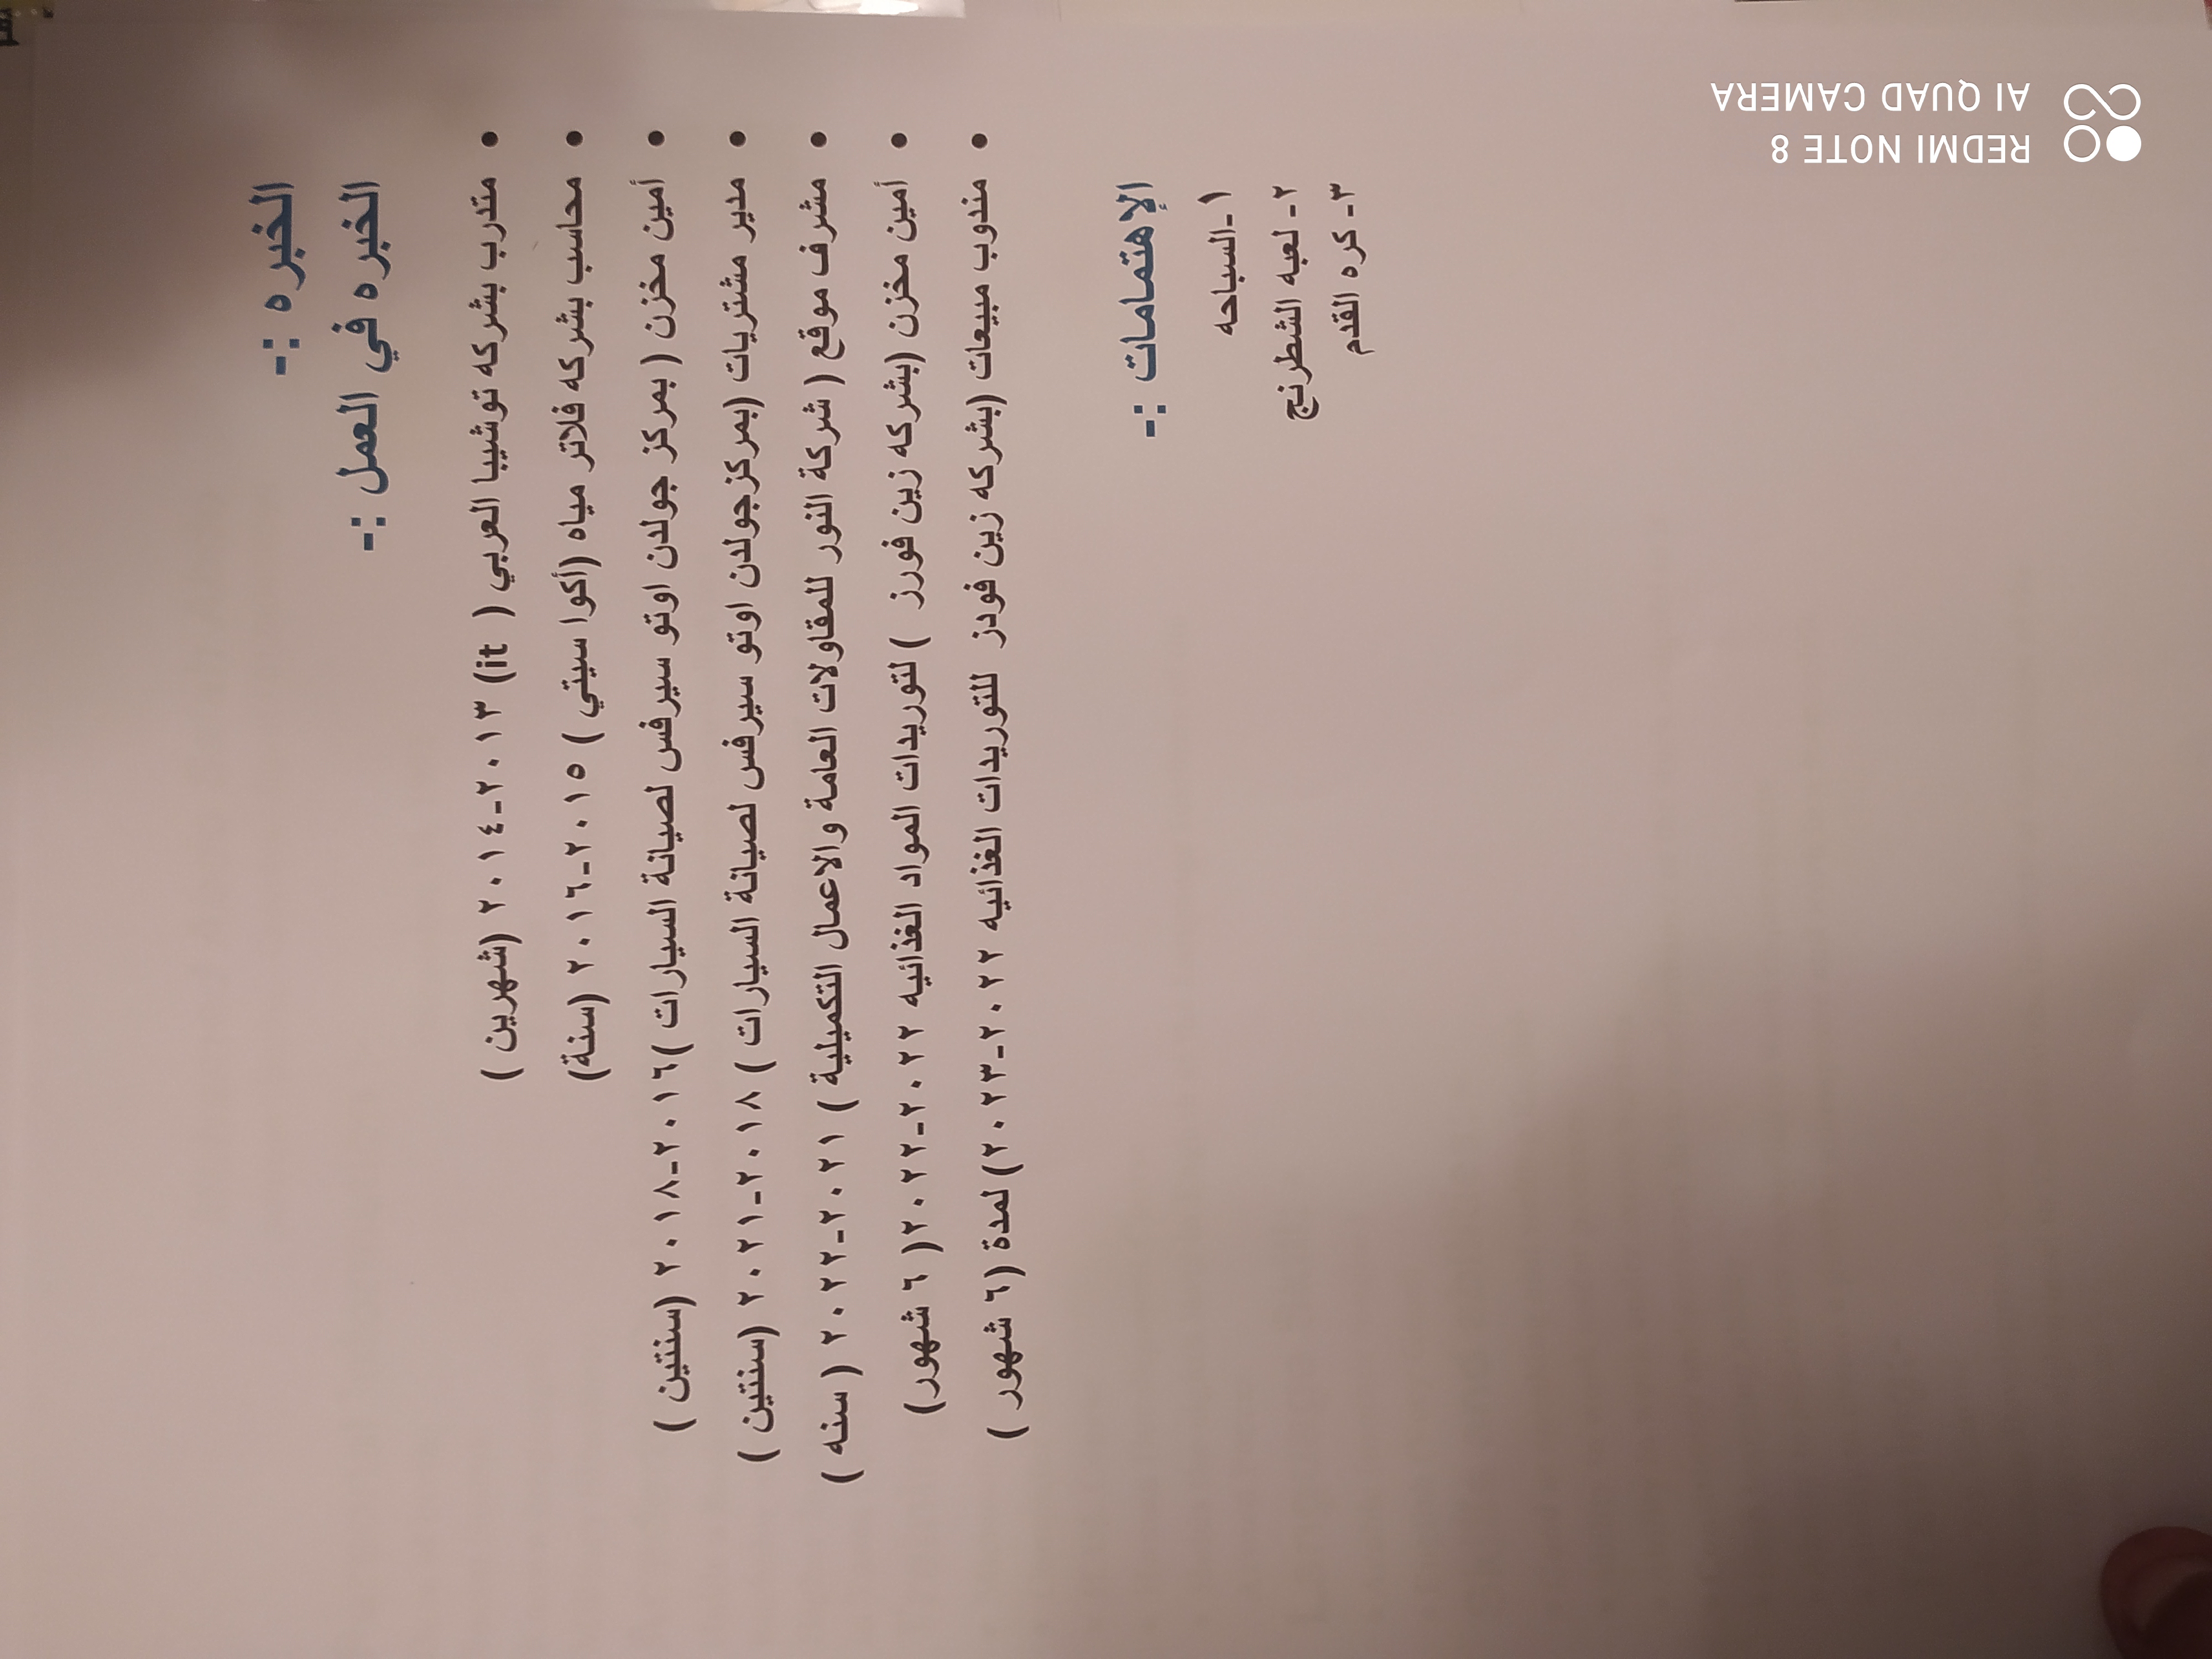 الخبره :-
الخبره في العمل :-
• متدرب بشركه توشيبا العربي ( it) ٢٠١٣-٢٠١٤ (شهرين )
• محاسب بشركه فلاتر مياه (أكوا سيتي ) ٢٠١٥-٢٠١٦ (سنة)
• أمين مخزن ( بمركز جولدن اوتو سيرفس لصيانة السيارات )٢٠١٦-٢٠١٨ (سنتين )
• مدير مشتريات (بمركزجولدن اوتو سيرفس لصيانة السيارات ) ٢٠١٨-٢٠٢١ (سنتين )
• مشرف موقع ( شركة النور للمقاولات العامة والاعمال التكميلية ) ٢٠٢١-٢٠٢٢ ( سنه )
• أمين مخزن (بشركه زين فورز ) لتوريدات المواد الغذائيه ٢٠٢٢-٢٠٢٢( ٦ شهور)
• مندوب مبيعات (بشركه زين فودز للتوريدات الغذائيه ٢٠٢٢-٢٠٢٣) لمدة (٦ شهور )
الإهتمامات :-
١-السباحه
٢- لعبه الشطرنج
٣- كره القدم
REDMI NOTE 8
AI QUAD CAMERA